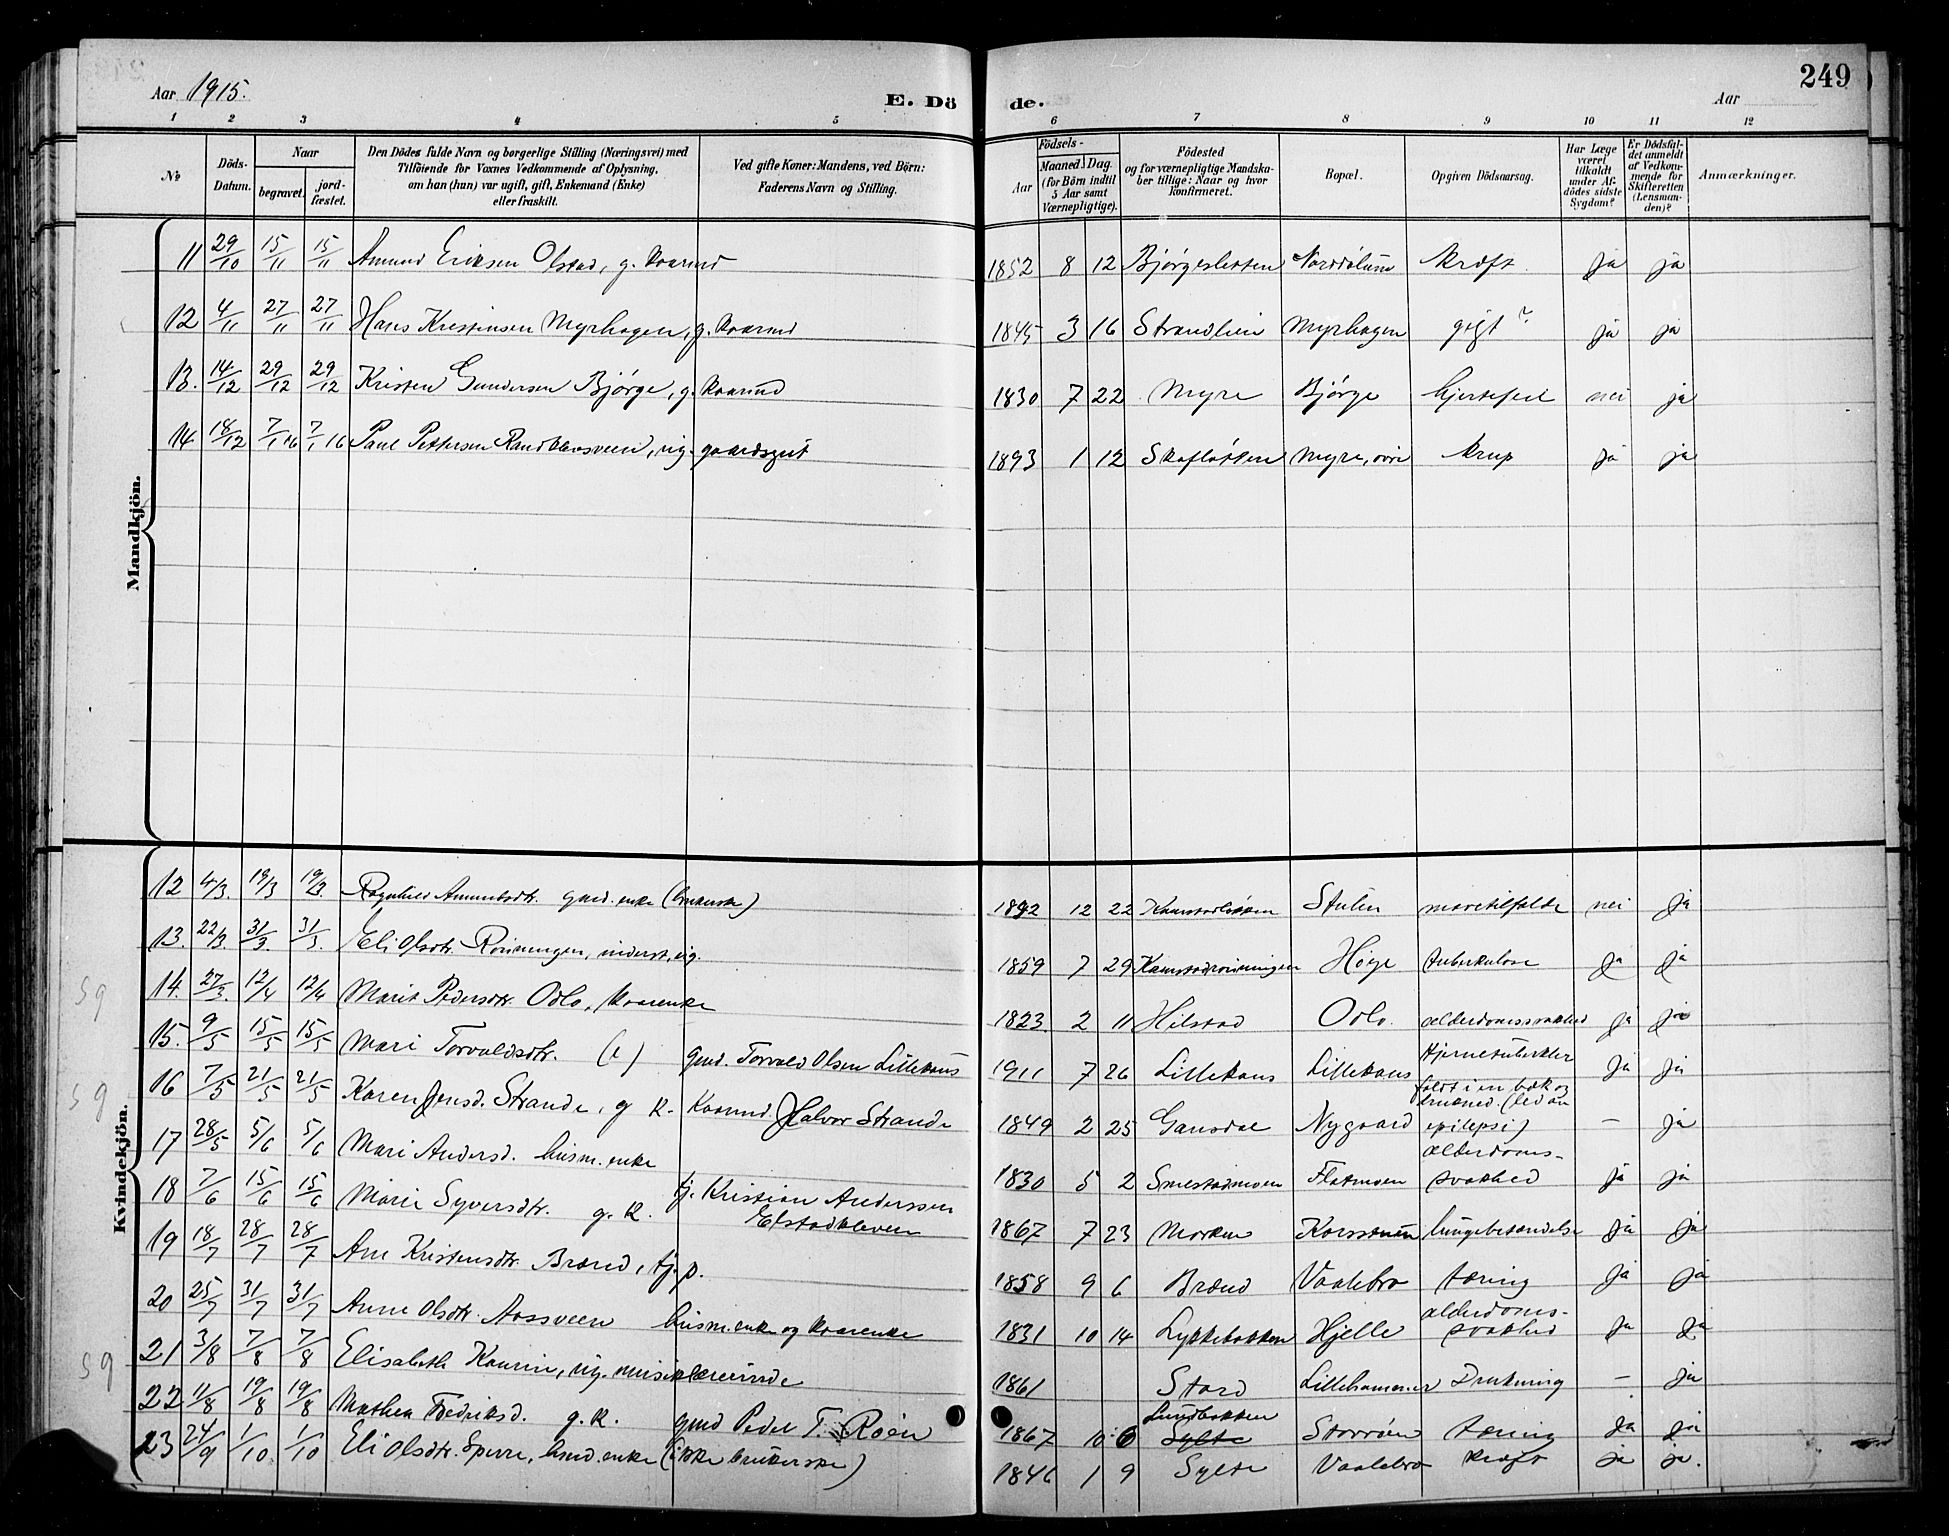 Aar 1915.
E. Dö
de.
Aar
249
1 2 3 4 5 6 7 8 9 10 11 12
No
Döds-Datum.
Naar
begravet.
jord-fæstet.
Den Dödes fulde Navn og borgerlige Stilling (Næringsvei) med
Tilföiende for Voxnes Vedkommende af Oplysning,
om han (hun) var ugift, gift, Enkemand (Enke)
eller fraskilt.
Ved gifte Koner: Mandens, ved Börn:
Faderens Navn og Stilling.
Födsels-
Aar
Maaned. Dag.
(for Börn indtil
5 Aar samt
Værnepligtige).
Födested
og for værnepligtige Mandska-
ber tillige: Naar og hvor
konfirmeret.
Bopæl.
Opgiven Dödsaarsag.
Har Læge
været
tilkaldt
under Af-
dödes sidste
Sygdom?
Er Dödsfal-
det anmeldt
af Vedkom-
mende for
Skifteretten
(Lensman-
den)?
Anmærkninger.
Mandkjön.
11 29/10 15/11 15/11 Amund Eriksen Olstad, g. kaarmd 1852 8 12 Bjørgesletten Norddølum kræft. ja ja
12 4/11 27/11 27/11 Hans Kristiansen Myrhagen, g. kaarmd 1845 3 16 Strandlien Myrhagen gigt? ja ja
13. 14/12 29/12 29/12 Kristen Gundersen Bjørge, g. kaarmd 1830 7 22 Myre Bjørge hjertefeil nei ja
14 18/12 7/1 16 7/1 16 Paul Pettersen Randklevsveen, ug. gaardsgut 1893 1 12 Skafløkken Myre, øvre krup ja ja
Kvindekjön.
12 4/3. 19/3 19/3 Ragnhild Amundsdtr. gmd. enke (brukerske) 1892 12 22 Kamstadløkken Stulen mavetilfælde nei ja
13. 22/3. 31/3. 31/3. Eli Olsdtr. Rønningen, inderst, ug. 1859 7 29 Kamstadrønningen Høge tuberkulose ja ja
sg 14. 27/3. 12/4 12/4 Marit Pedersdtr. Odlo, kaarenke 1823 2 11 Hilstad Odlo. alderdomssvakhed ja ja
15. 9/5 15/5 15/5 Mari Torvaldsdtr. gmd. Torvald Olsen Lillekaus 1911 7 26 Lillekaus Lillekaus Hjernetuberkler ja ja
sg 16 7/5 21/5 21/5 Karen Jensd. Strande, g. k. kaarmd. Halvor Strande 1849 2 25 Gansdal Nygaard faldt i en bæk og
druknet. (led av
epilepsi) – ja
17 28/5 5/6 5/6 Mari Andersd. husm. enke 1830 5 2 Smestadmoen Flatmoen alderdoms-
svakhed ja ja
18 7/6 15/6 15/6 Marie Syversdtr. g. k. tj. Kristian Anderssen
Elstadkleven 1867 7 23 Morken Korsstuen lungebetændelse ja ja
19 18/7 28/7 28/7 Ane Kristensdtr. Brænd, tj. p. 1858 9 6 Brænd Vaalebro tæring ja ja
20 25/7 31/7 31/7 Anne Olsdtr. Aassveen husm. enke og kaarenke 1831 10 14 Lykkebakken Hjelle alderdoms-
svakhed ja ja
sg 21 3/8 7/8 7/8 Elisabeth Kaurin, ug. musiklærerinde 1861 Stord Lillehammer Drukning – ja
22 11/8 19/8 19/8 Mathea Fredriksd. g. k. gmd Peder T. Røen 1867 10 6 Lundbakken
Sylte Storrøen tæring ja ja
23 24/9 1/10 1/10 Eli Olsdtr. Sperre, gmd. enke (ikke brukerske) 1846 1 9 Sylte Vaalebro kræft ja ja.